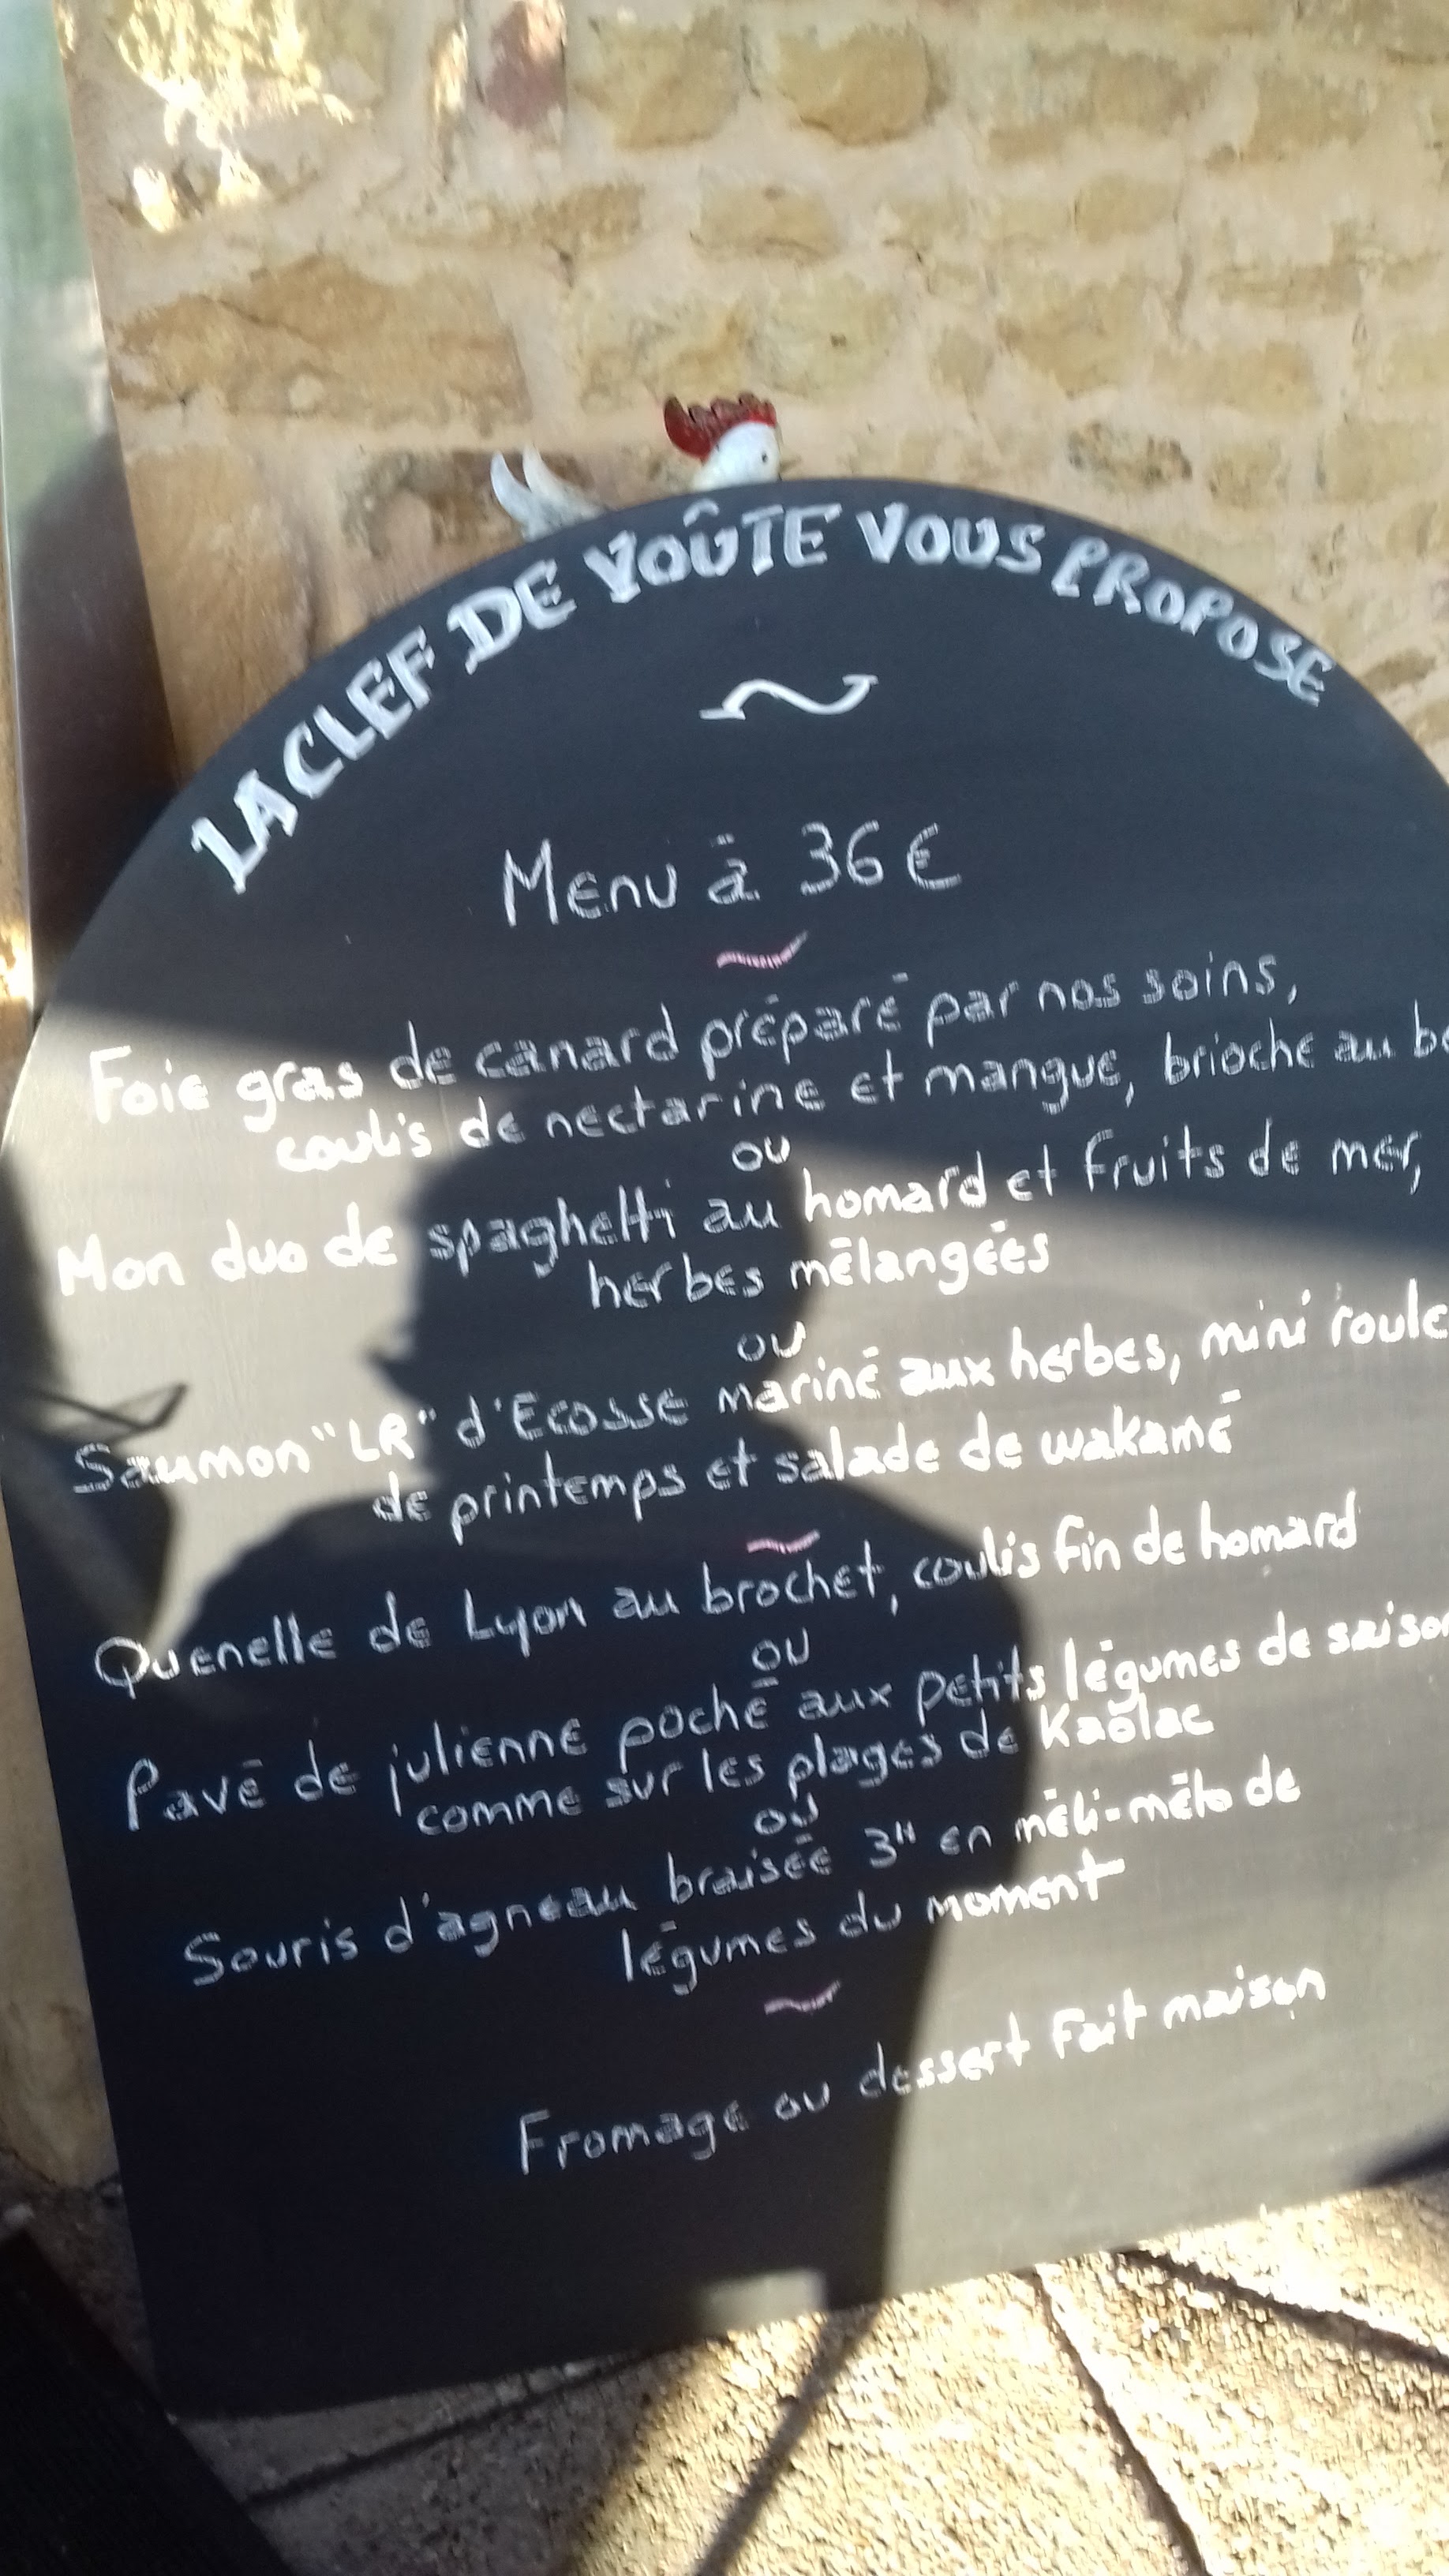 LA CLEF DE VOÛTE VOUS PROPOSE
Menu à 36€
Foie gras de canard préparé par nos soins,
coulis de nectarine et mangue, brioche au
ou
Mon duo de spaghetti au homard et fruits de mer,
herbes mélangées
ou
Saumon "LR" d'Ecosse mariné aux herbes, mini
de printemps et salade de wakamé
Quenelle de Lyon au brochet, coulis fin de homard
ou
Pavé de julienne poché aux petits légumes de saison
comme sur les plages de Kaolac
ou
Souris d'agneau braisée 3H en méli-mélo de
légumes du moment
Fromage ou dessert fait maison